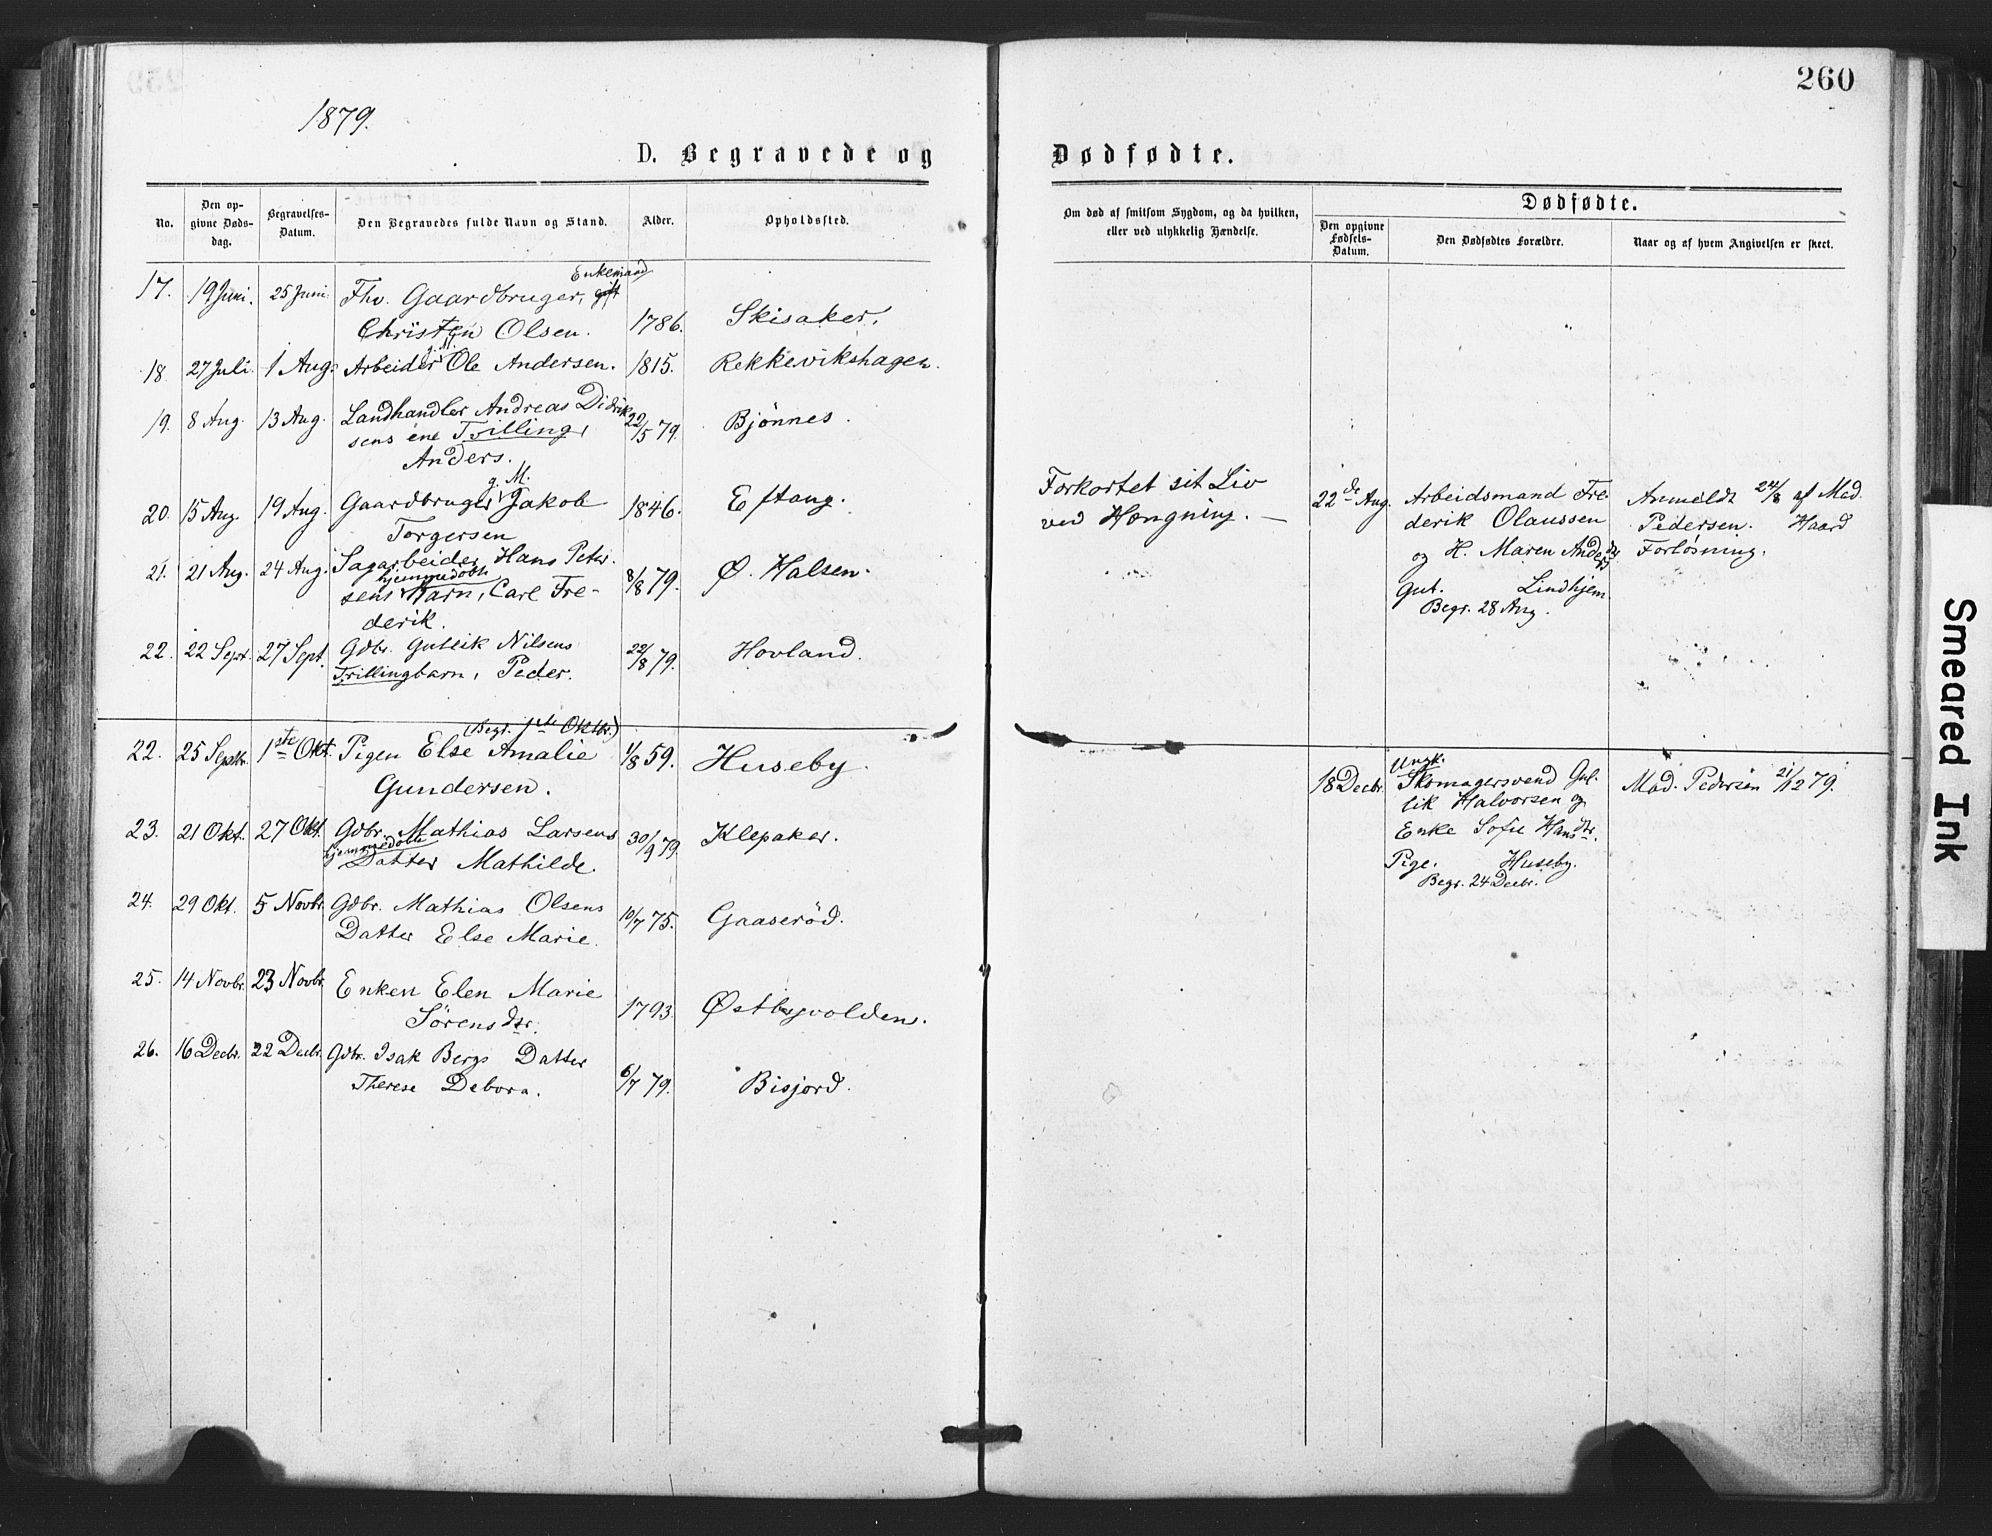 260
1879.
D. Begravede og Dødfødte.
No.
Den opgivne Dødsdag.
Begravelses-Datum.
Den Begravedes fulde Navn og Stand.
Alder.
Opholdssted.
Om død af smitsom Sygdom, og da hvilken, eller ved ulykkelig Hændelse.
Dødfødte.
Den opgivne Fødsels-Datum.
Den Dødfødtes Forældre.
Naar og af hvem Angivelsen er skeet.
17. 19 Juni. 25 Juni. Fhv. Gaardbruger, gift Enkemand
Christen Olsen. 1786. Skisaker.
18. 27 Juli. 1 Aug. Arbeider g. M. Ole Andersen. 1815. Rekkevikshagen.
19. 8 Aug. 13 Aug. Landhandler Andreas Didrik
sens ene Tvilling, 22/5 79. Bjønnes.
Anders.
20. 15 Aug. 19 Aug. Gaardbruger g. M. Jakob 1846. Eftang.
Torgersen
Forkortet sit Liv
ved Hængning. —
22de Aug. Arbeidsmand Fre
derik Olaussen
og H. Maren Andersdtr
Gut. Lindhjem.
Begr. 28 Aug.
Anmeldt 24/8 af Mad.
Pedersen. Haard
Forløsning.
21. 21 Aug. 24 Aug. Sagarbeider Hans Peter
sens hjemmedøbte Barn, Carl Fre- 8/8 79. Ø. Halsen.
derik.
22. 22 Sept. 27 Sept. Gdbr. Gullik Nilsens 22/8 79. Hovland.
Trillingbarn, Peder.
22. 25 Septbr. 1ste Okt. Pigen Else Amalie (Begr. 1ste Oktbr.) 1/8 59. Huseby.
Gundersen.
18 Decbr. Ungk.
Skomagersvend Gul-
lik Halvorsen og
Enke Sofie Hansdtr.
Pige. Huseby.
Begr. 24 Decbr.
Mad. Pedersen 21/12 79.
23. 21 Okt. 27 Okt. Gdbr. Mathias Larsens 30/9 79. Klepaker.
hjemmedøbte Datter Mathilde.
24. 29 Okt. 5 Novbr. Gdbr. Mathias Olsens 10/7 75. Gaaserød.
Datter Else Marie.
25. 14 Novbr. 23 Novbr. Enken Elen Marie
Sörensdtr. 1793. Østbyvolden.
26. 16 Decbr. 22 Decbr. Gdbr. Isak Bergs Datter
Therese Debora. 6/7 79. Bisjord.
Smeared Ink